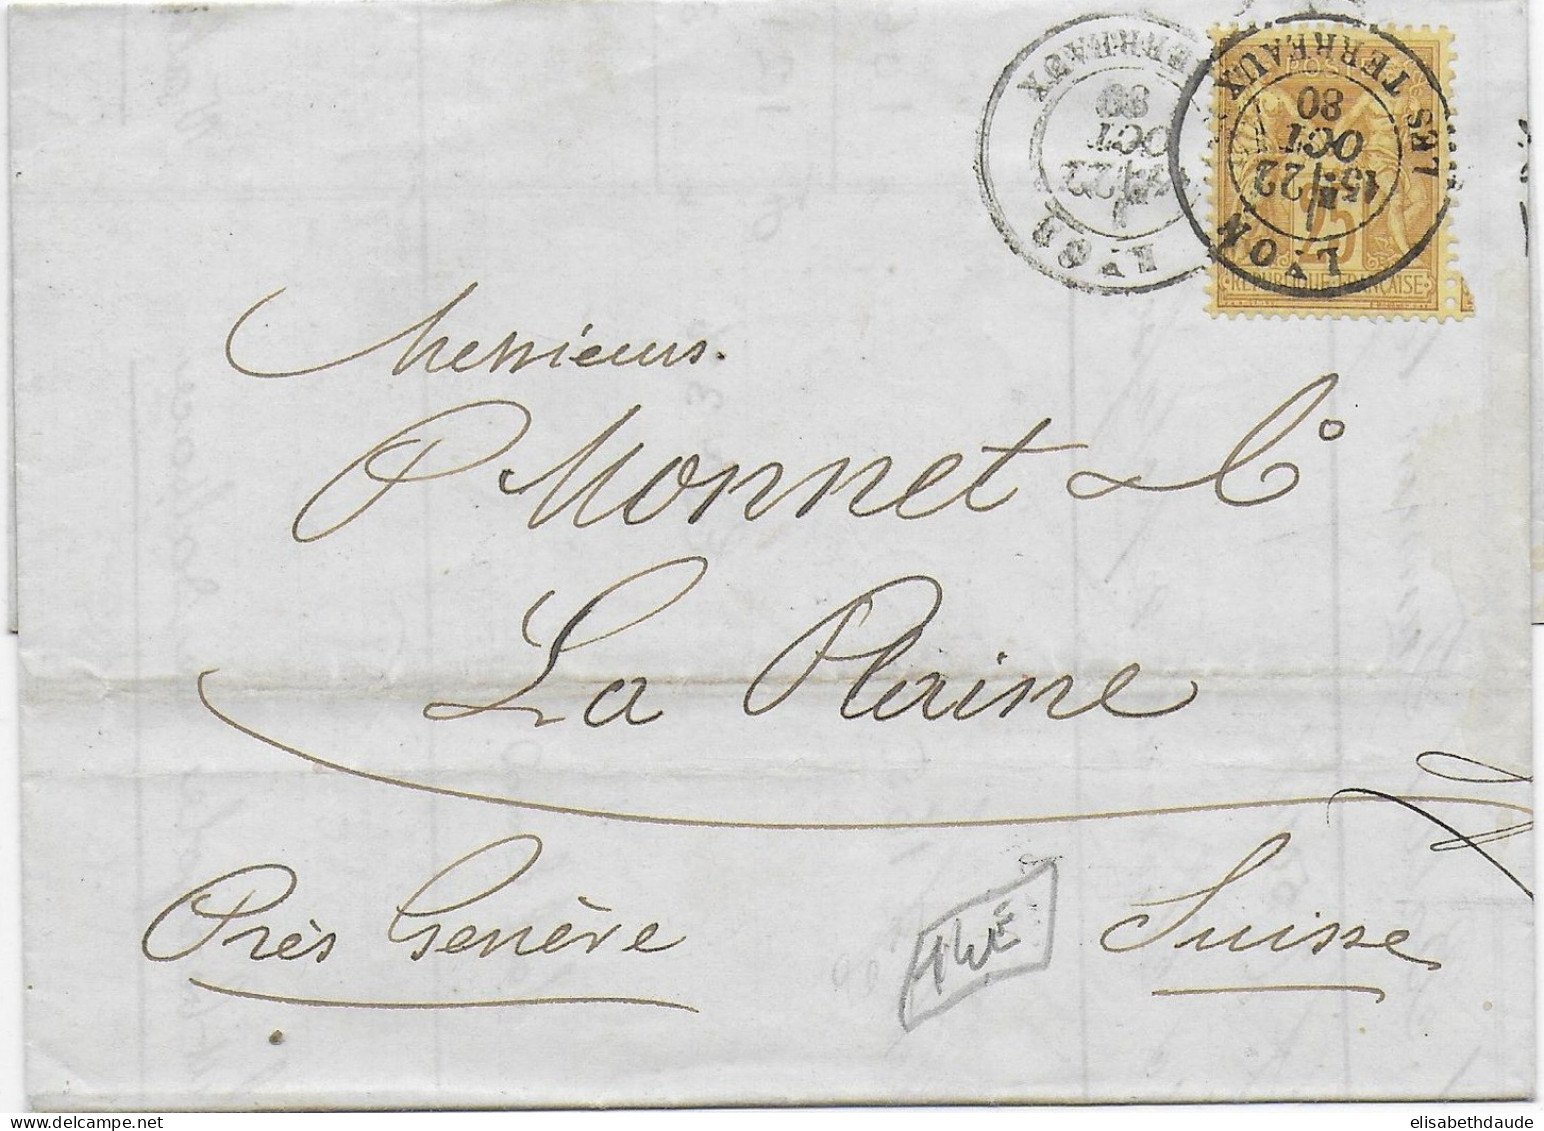 LYON
LES TERREAUX
22
OCT
80
LYON
LES TERREAUX
15
22
OCT
80
POSTES
25
REPUBLIQUE FRANÇAISE
Messieurs
P. Monnet & Cº
La Plaine
Près Genève Suisse
elisabethdaude